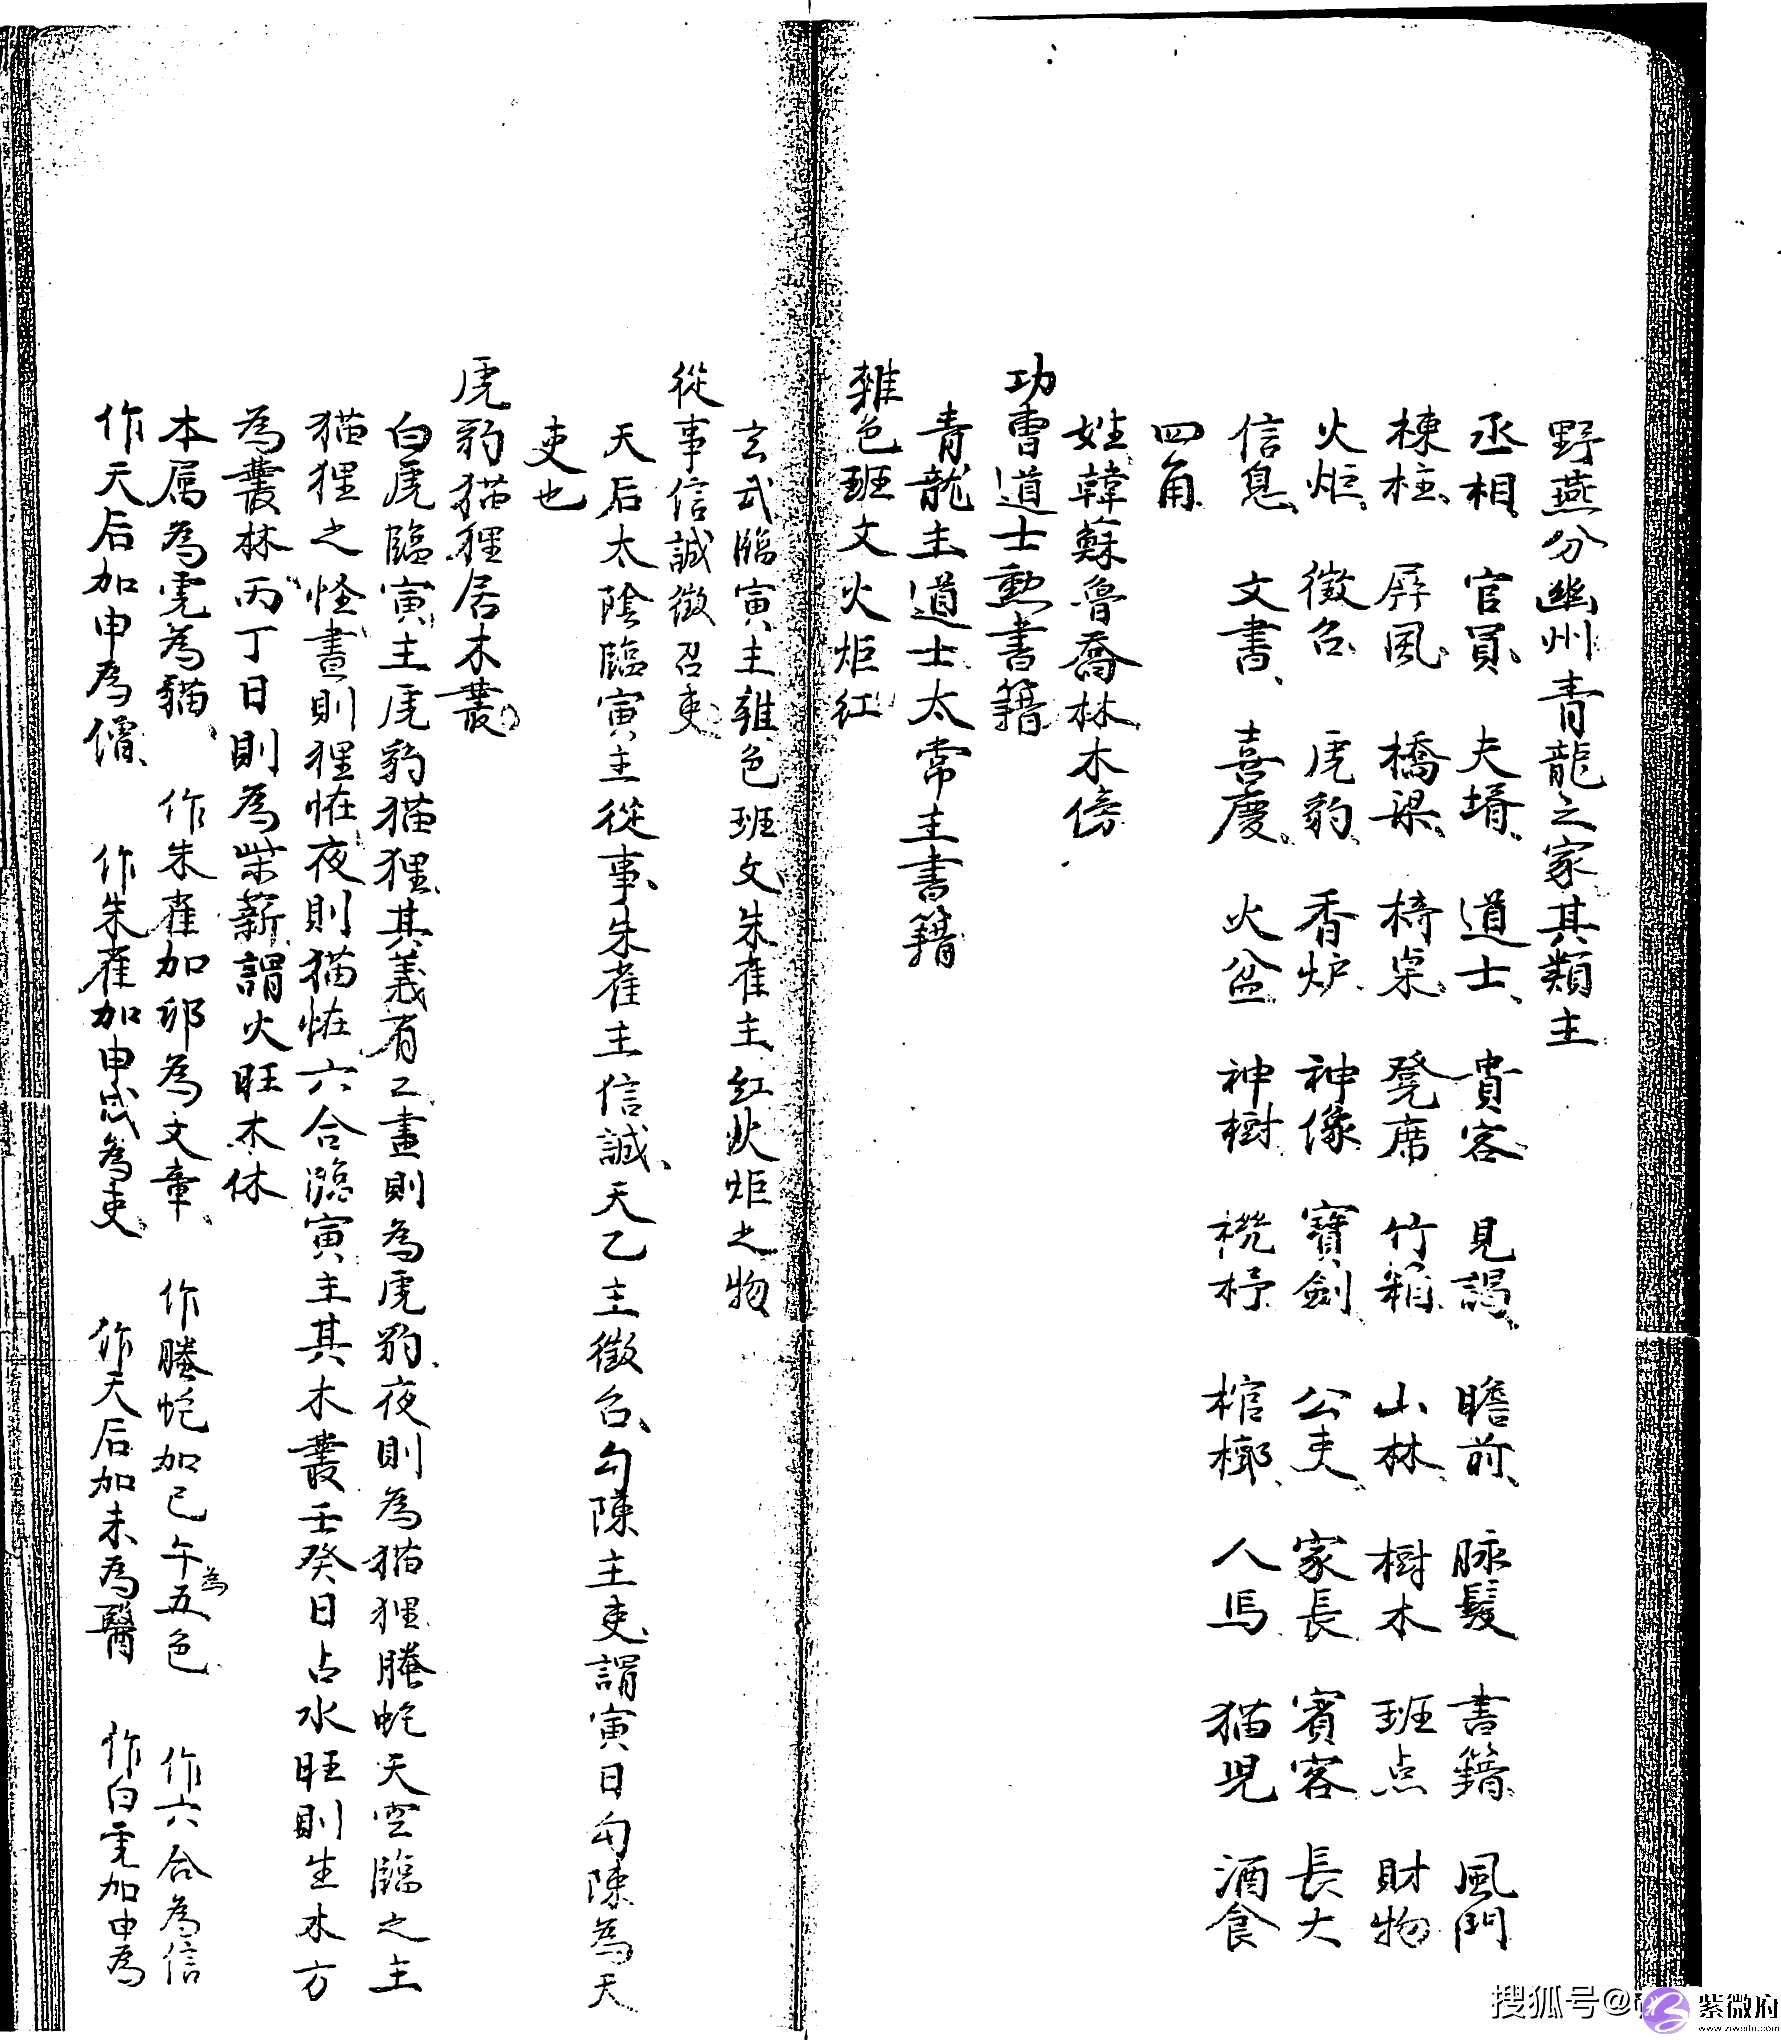 野燕分幽州青龍之家其類主
丞相 官員 夫壻 道士 貴客 見謁 瞻前 脉髮 書籍 風門
棟柱 屏風 橋梁 椅桌 凳席 竹箱 山林 樹木 班点 財物
火炬 徵召 虎豹 香炉 神像 寶劍 公吏 家長 賓客 長大
信息 文書 喜慶 火盆 神樹 棺槨 人馬 猫児 酒食
四角
姓韓蘇魯喬林木傍
功曹道士勲書籍
青龍主道士太常主書籍
雜色班文火炬紅
玄武臨寅主雜色班文朱雀主紅火炬之物
從事信誠徵召吏
天后太陰臨寅主從事朱雀主信誠天乙主徵召勾陳主吏謂寅日勾陳為天
吏也
虎豹猫狸居木叢
白虎臨寅主虎豹猫狸其義有二晝則為虎豹夜則為猫狸螣蛇天空臨之主
猫狸之怪晝則狸怪夜則猫怪六合臨寅主其木叢壬癸日占水旺則生木方
為叢林丙丁日則為柴薪謂火旺木休
本属為虎為貓 作朱雀加卯為文章 作螣蛇加巳午為五色 作六合為信
作天后加申為 作朱雀加申戌為吏 作天后加未為醫 作白虎加申為
搜狐号@
紫微府
www.ziweifu.com